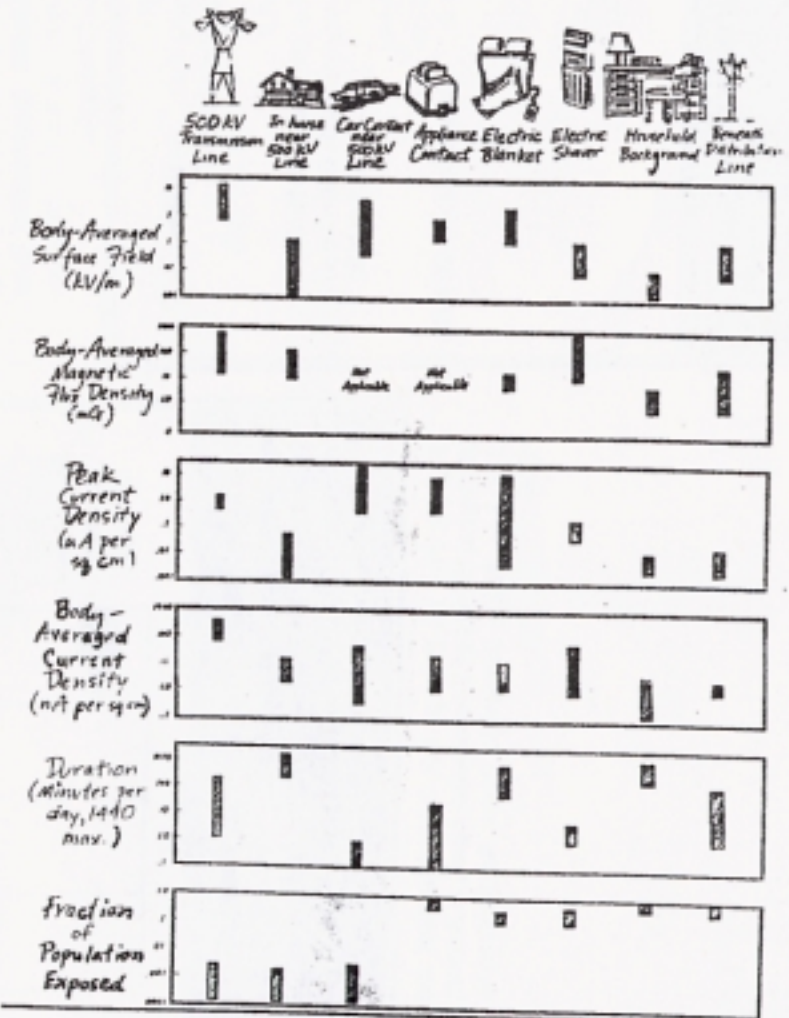 500 KV
Transmission
Line
In house
near
500 KV
Line
Car Contact
near
500 KV
Line
Appliance
Contact
Electric
Blanket
Electric
Shaver
Household
Background
Beneath
Distribution
Line
Body-Averaged
Surface Field
(kV/m)
Body-Averaged
Magnetic
Flux Density
(mG)
Not
Applicable
Not
Applicable
Peak
Current
Density
(uA per
sq cm)
Body-
Averaged
Current
Density
(nA per sq cm)
Duration
(Minutes per
day, 1440
max.)
Fraction
of
Population
Exposed